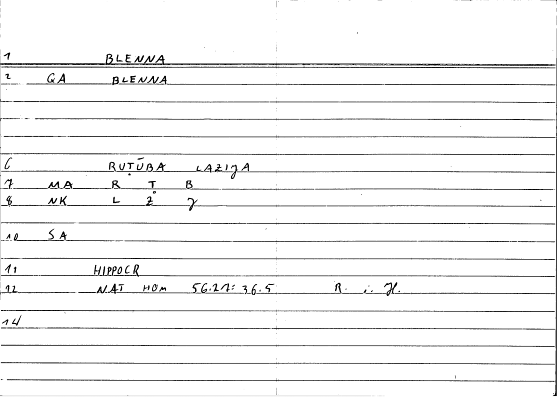 1 BLENNA
2 GA BLENNA
6 RUṬŪBA LAZIǧA
7 MA R Ṭ B
8 NK L Ż ǧ
10 SA
11 HIPPOCR
12 NAT HOM 56.21: 36.5 R. i. H.
14